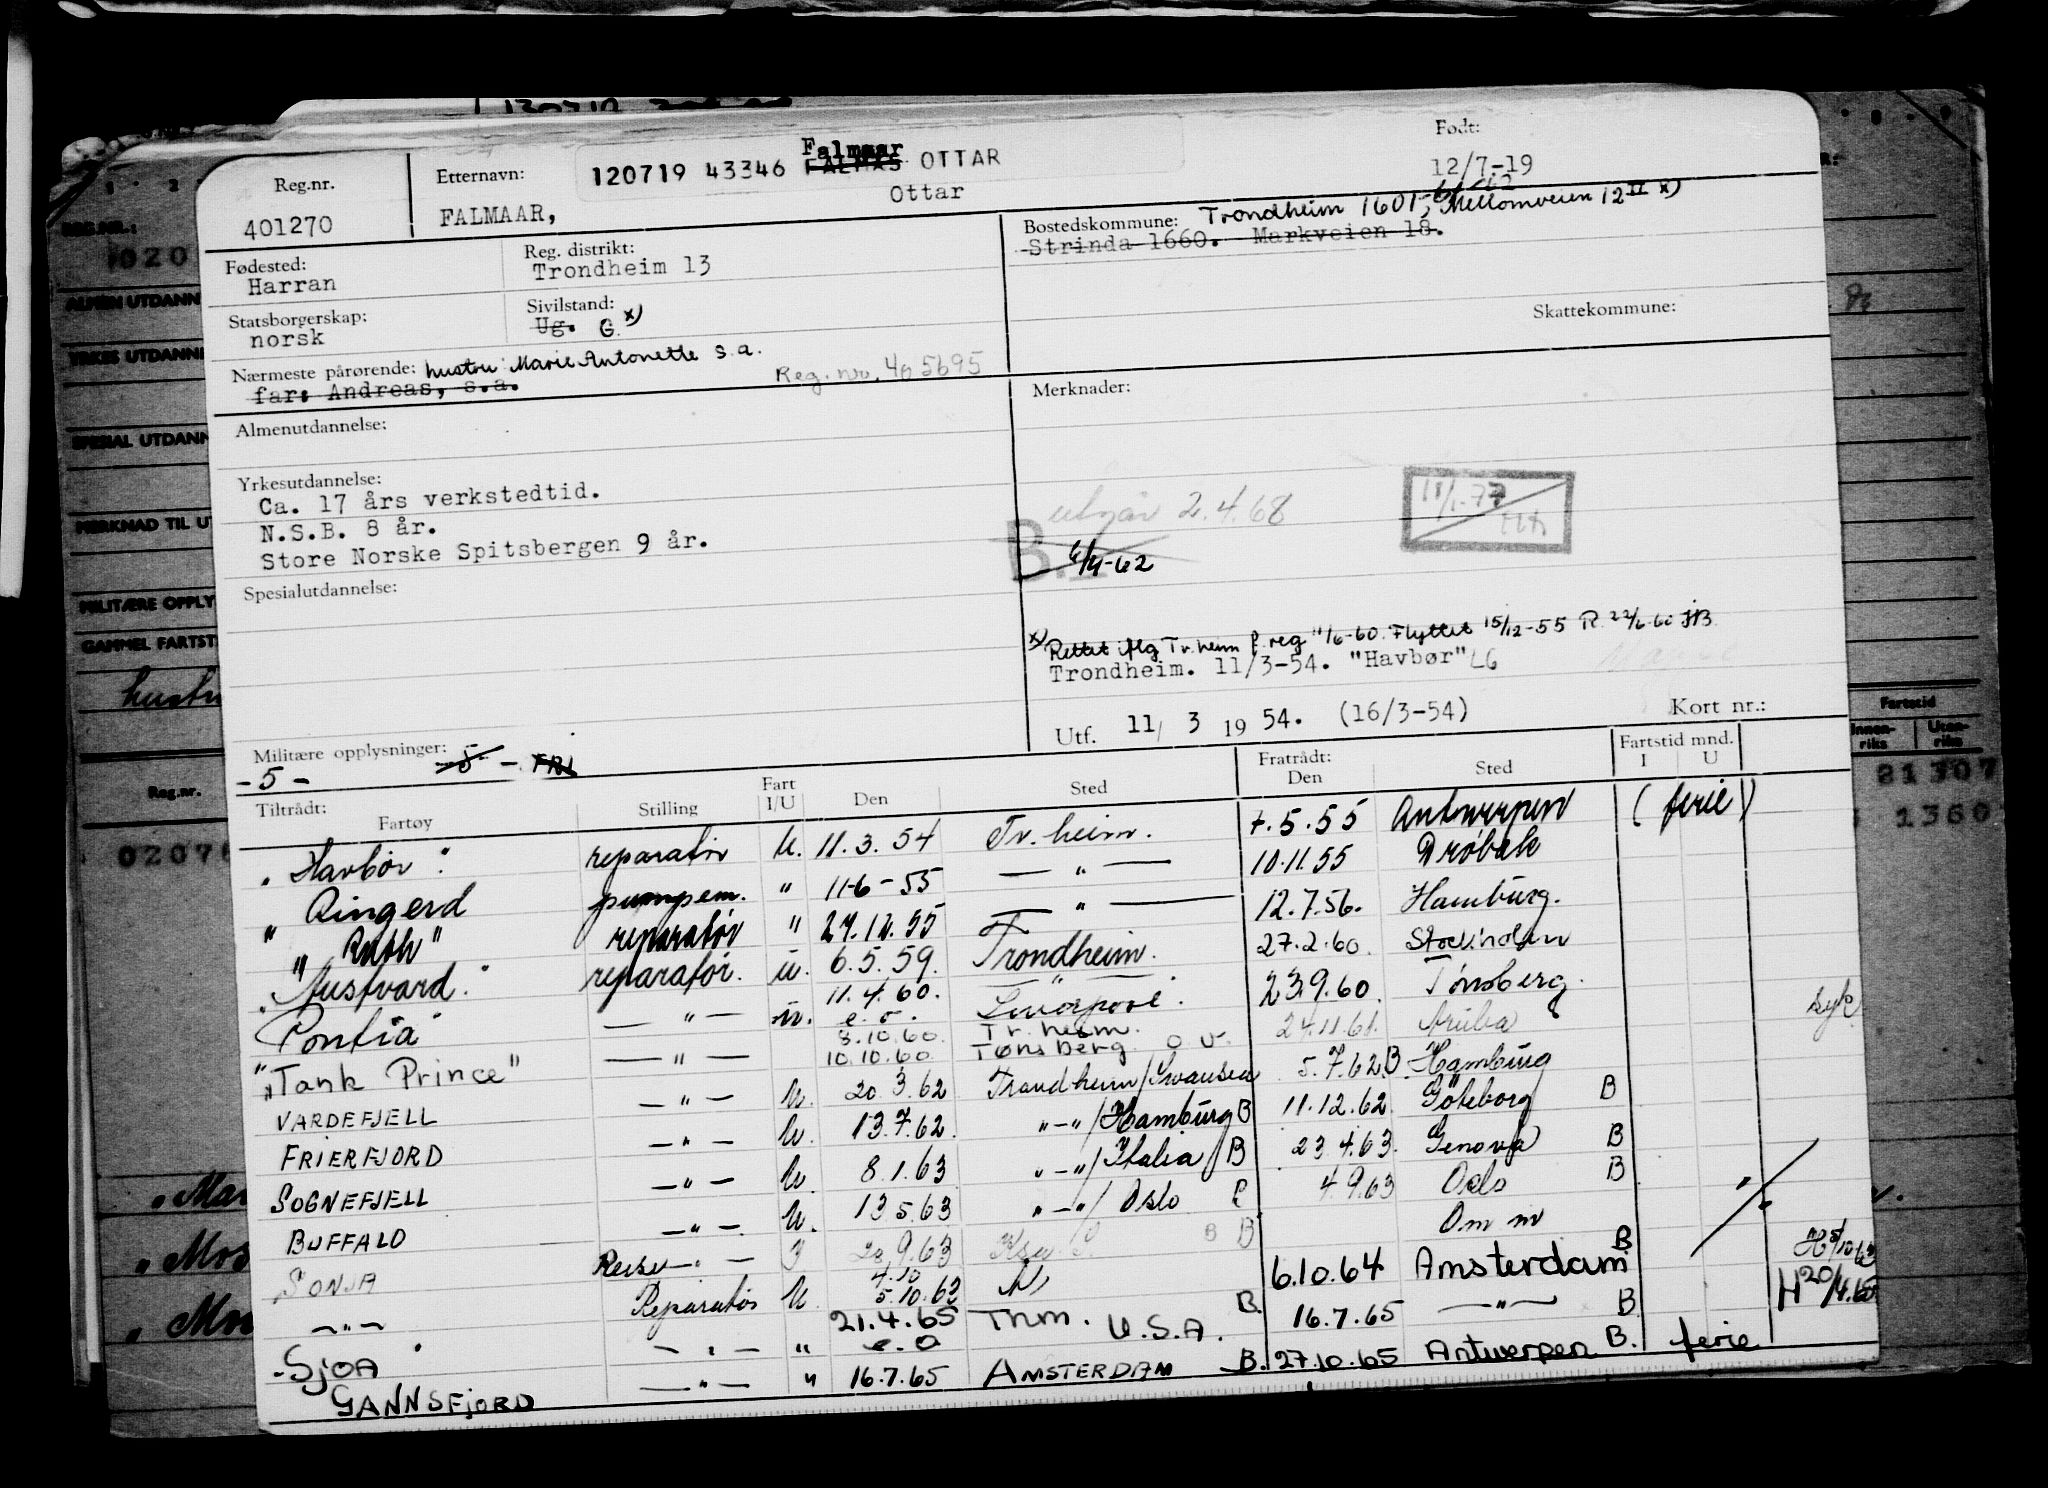 Reg.nr.
401270
Etternavn:
120719 43346 FALMAS OTTAR
Falmaar
FALMAAR, Ottar
Født:
12/7-19
Fødested:
Harran
Reg. distrikt:
Trondheim 13
Bostedskommune: Trondheim 1601, Mellomveien 12 II x)
Strinda 1660. Markveien 18.
Statsborgerskap:
norsk
Sivilstand:
Ug. G. x)
Skattekommune:
Nærmeste pårørende: hustru Marie Antonette s.a.
far: Andreas, s.a.
Reg. nr. 405695
Merknader:
Almenutdannelse:
Yrkesutdannelse:
Ca. 17 års verkstedtid.
N.S.B. 8 år.
Store Norske Spitsbergen 9 år.
utgår 2.4.68
11/1-77
B.
6/4-62
Spesialutdannelse:
x) Rettet iflg Tr.heim f.reg 11/6-60. Flyttet 15/12-55 R. 22/6-60
Trondheim. 11/3-54. "Havbør" LG
Utf. 11/ 3 19 54. (16/3-54)
Kort nr.:
Militære opplysninger: -5- - FRI
-5-
Tiltrådt: Fartøy Stilling Fart I/U Den Sted Fratrådt: Den Sted Fartstid mnd. I U
"Havbör" reparatör U. 11.3.54 Tr.heim. 7.5.55 Antwerpen (ferie)
" Ringerd pumpem. " 11-6-55 — " — 10.11.55 Drøbak
" Ruth" reparatør " 27.12.55 — " — 12.7.56. Hamburg.
"Austvard." reparatør. u. 6.5.59. Trondheim. 27.2.60. Stockholm
"Pontia" — " — u. 11.4.60. e.o. — " — Liverpool. 23.9.60. Tønsberg.
"Tank Prince" — " — 8.10.60. 10.10.60 Tr.heim. Tønsberg o U. 24.11.61. Aruba syk
VARDEFJELL — " — U. 20.3.62 Trondheim/Swansea 5.7.62 B Hamburg
FRIERFJORD — " — U. 13.7.62. "—"/Hamburg B 11.12.62. Göteborg B
SOGNEFJELL — " — U. 8.1.63 "—"/Italia B 23.4.63. Genova B
BUFFALO — " — U. 13.5.63 "—"/Oslo 4.9.63 Oslo B
SONJA Reise — " — 9.63 B Om m
— " — Reparatør U. 4.10 5.10.63 B. 6.10.64 Amsterdam B
SJOA — " — " 21.4.65 e.o Thm. U.S.A. 16.7.65 — " — B H 20/4.65
GANNSFJORD — " — " 16.7.65 AMSTERDAM B. 27.10.65 Antwerpen B. ferie
REG.NR.:
020
ALMEN UTDANN
YRKES UTDANNE
SPESIAL UTDANN
MERKNAD TIL U
MILITÆRE OPPLY
GAMMEL FARTST
hustr
Reg.nr.
0207
Fartstid
Innen-riks Uten-riks
21307
1360
"Mar
"Mos
"Mos